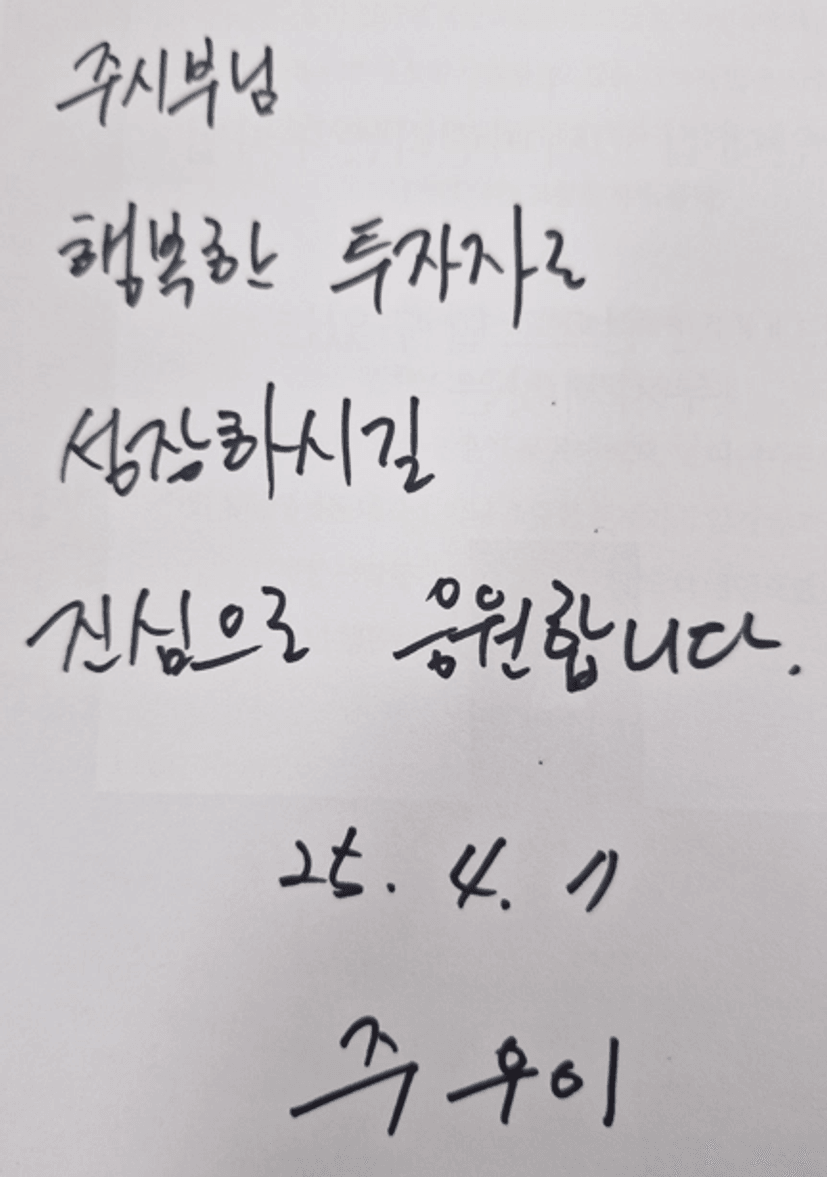 주시부님
행복한 투자자로
성장하시길
진심으로 응원합니다.
25. 4. 11
주우이